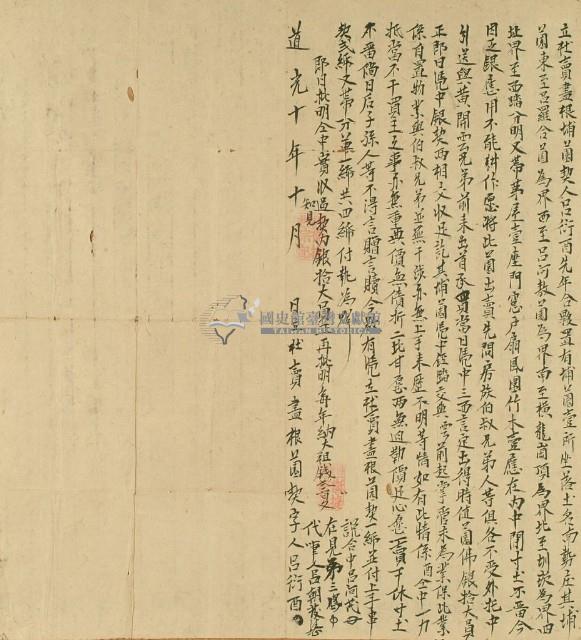 立杜賣盡根埔園契人呂衍酉先年合夥置有埔園壹所坐落土名南勢庄其埔
園東至呂羅合園為界西至呂河教園為界南至橫龍崗頂為界北至圳崁為界四
址界至西踏分明又帶茅屋壹座門窓戶扇風圍竹木壹應在內中間寸土不留今
因乏銀應用不能耕作愿將此園出賣先問房族伯叔兄弟人等俱各不受外托中
引送與黃開雲兄弟前來出首承買當日憑中三面言定出得時值園價佛銀拾大員
正即日憑中銀契兩相交收足訖其埔園憑中踏交與雲前起掌管永為業保此業
係自置物業與伯叔兄弟並無干涉亦無上手來歷不明等情如有此情係酉全中一力
抵當不干買主之事亦無重典價無債折二比甘愿兩無迫勒價足心愿一賣千休寸土
不留倘日后子孫人等不得言贈言贖今欲有憑立杜賣盡根園契一紙並付上手章
契貳紙又帶分單一紙共四紙付執為炤
即日批明全中實收過契內銀拾大員正再批明每年納大租錢
說合中呂河茂
知見
在見弟三
代筆人呂朝
道光十年十月 日立杜賣盡根園契字人呂衍酉
國史館臺灣文獻館
TAIWAN HISTORICA